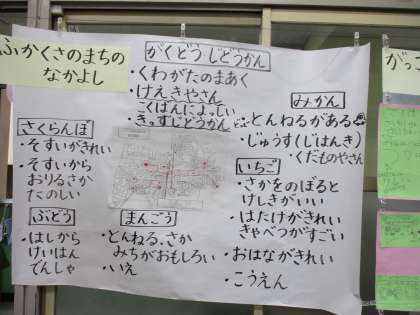 ふかくさのまちの
なかよし
がくどう・じどうかん
・くわがたのまあく
・けえきやさん
こくばんに
・とんねるがある
・じゅうす(じはんき)
・くだものやさん
みかん
さくらんぼ
・そすいがきれい
・そすいから
おりるさか
たのしい
いちご
・さかをのぼると
けしきがいい
・はたけがきれい
きゃべつがすごい
・おはながきれい
・こうえん
ぶどう
・はしから
けいはん
でんしゃ
まんごう
・とんねる、さか
みちがおもしろい
・いえ
がっこ